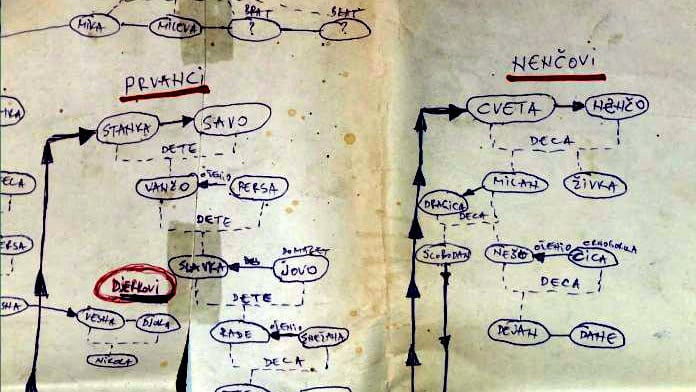 BRAT
BRAT
MIKA
MILEVA
?
?
PRVANCI
NENČOVI
STANKA
SAVO
CVETA
NENČO
DETE
DECA
VANČO
OŽENIO
PERSA
MILAN
ŽIVKA
DRAGICA
DETE
DECA
SLAVKA
DOMAZET
JOVO
SLOBODAN
NEŠO
OŽENIO
CRNOGORKA
ČIČA
DJERKOVI
DETE
DECA
VESNA
DJOKA
RADE
OŽENIO
SNEŽANA
DEJAN
DANE
NIKOLA
DECA